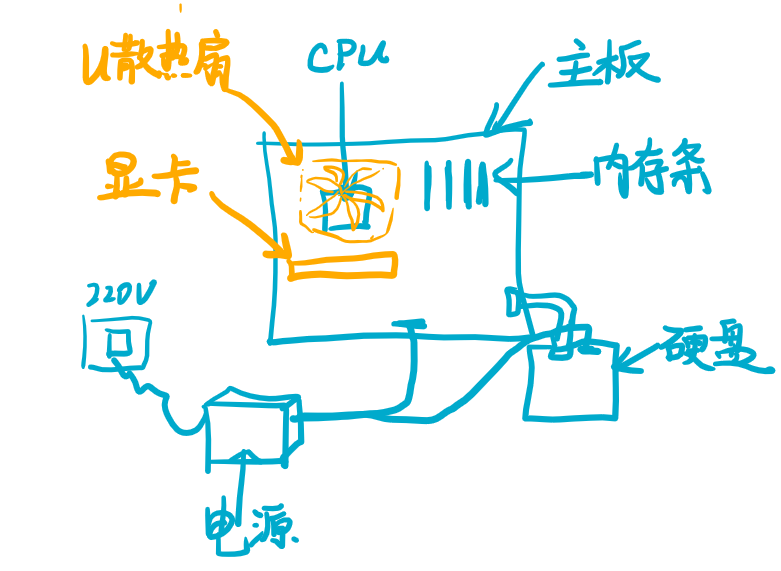 U散热扇
CPU
主板
显卡
内存条
220V
硬盘
电源